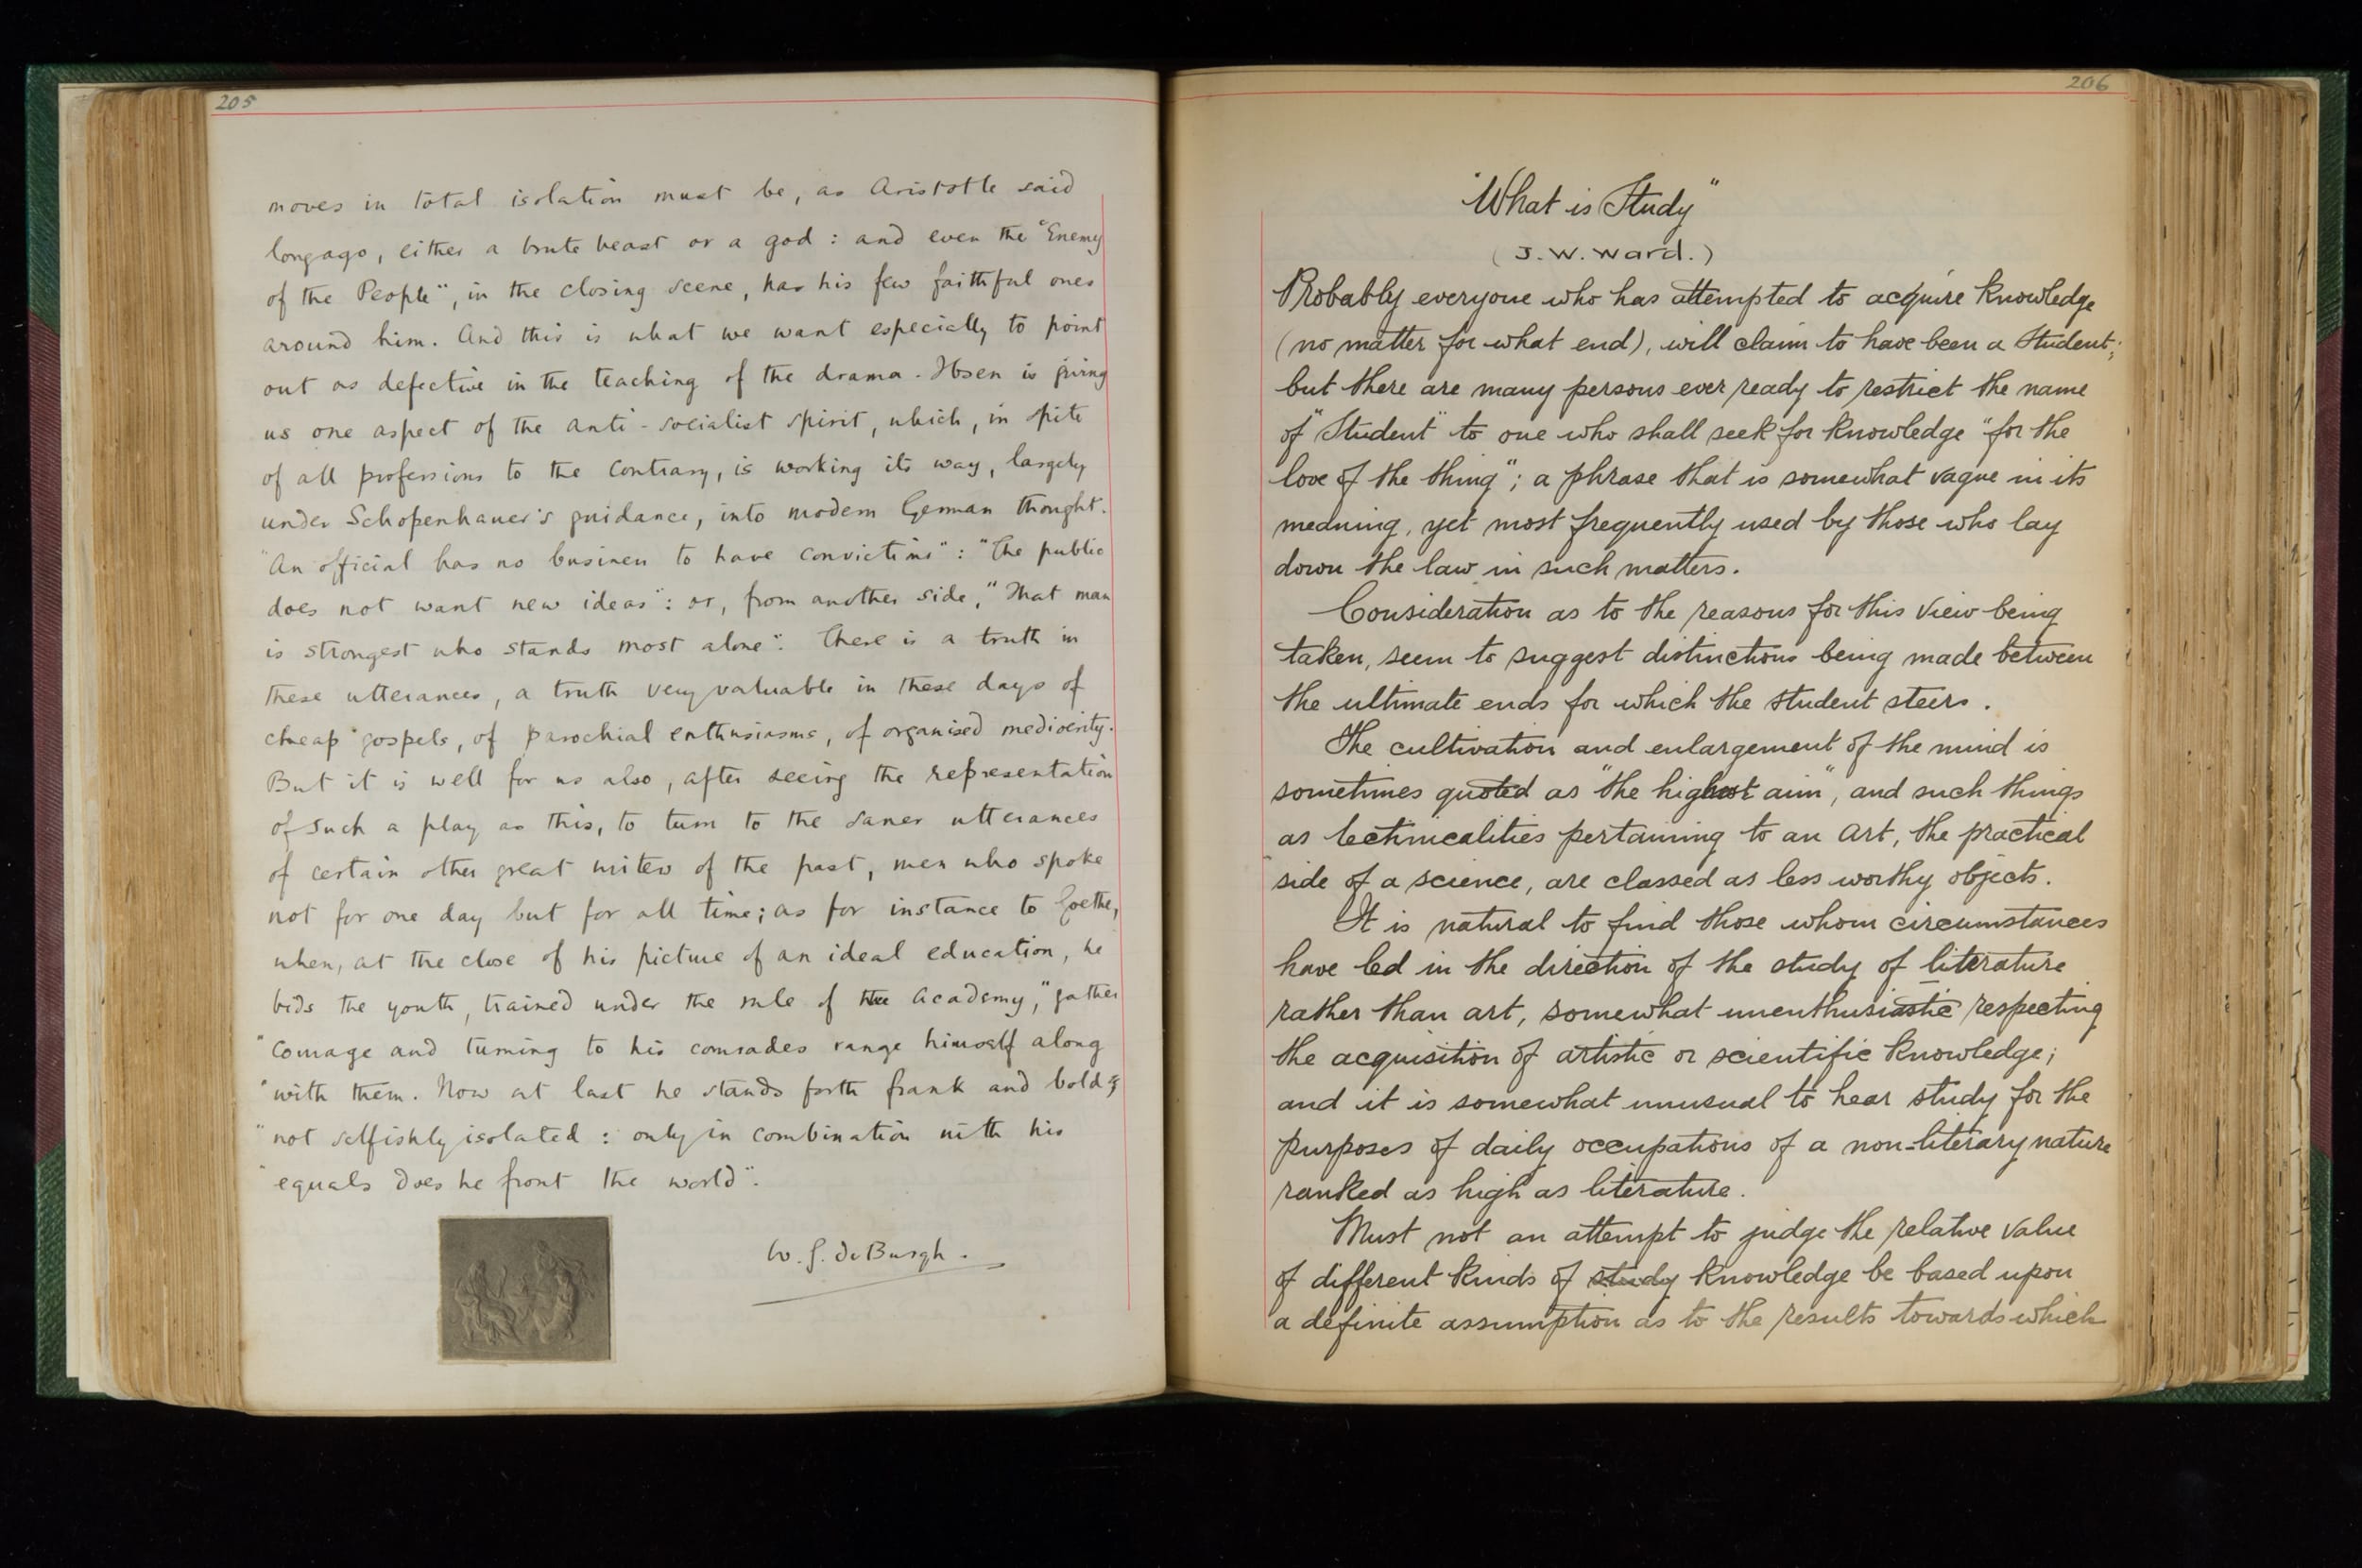 205
moves in total isolation must be, as Aristotle said
long ago, either a brute beast or a god : and even the "Enemy
of the People", in the closing scene, has his few faithful ones
around him. And this is what we want especially to point
out as defective in the teaching of the drama. Ibsen is giving
us one aspect of the anti-socialist spirit, which, in spite
of all professions to the contrary, is working its way, largely
under Schopenhauer's guidance, into modern German thought.
"An official has no business to have convictions" : "The public
does not want new ideas" : or, from another side, "That man
is strongest who stands most alone". There is a truth in
these utterances, a truth very valuable in these days of
cheap gospels, of parochial enthusiasms, of organised mediocrity.
But it is well for us also, after seeing the representation
of such a play as this, to turn to the saner utterances
of certain other great writers of the past, men who spoke
not for one day but for all time; as for instance to Goethe,
when, at the close of his picture of an ideal education, he
bids the youth, trained under the rule of the Academy, "gather
"courage and turning to his comrades range himself along
"with them. Now at last he stands forth frank and bold;
"not selfishly isolated : only in combination with his
"equals does he front the world".
W. G. de Burgh.
206
"What is Study"
(J. W. Ward.)
Probably everyone who has attempted to acquire knowledge
(no matter for what end), will claim to have been a Student;
but there are many persons ever ready to restrict the name
of "Student" to one who shall seek for knowledge "for the
love of the thing"; a phrase that is somewhat vague in its
meaning, yet most frequently used by those who lay
down the law in such matters.
Consideration as to the reasons for this view being
taken, seem to suggest distinctions being made between
the ultimate ends for which the student steers.
The cultivation and enlargement of the mind is
sometimes quoted as "the highest aim", and such things
as technicalities pertaining to an art, the practical
side of a science, are classed as less worthy objects.
It is natural to find those whom circumstances
have led in the direction of the study of literature
rather than art, somewhat unenthusiastic respecting
the acquisition of artistic or scientific knowledge;
and it is somewhat unusual to hear study for the
purposes of daily occupations of a non-literary nature
ranked as high as literature.
Must not an attempt to judge the relative value
of different kinds of study knowledge be based upon
a definite assumption as to the results towards which